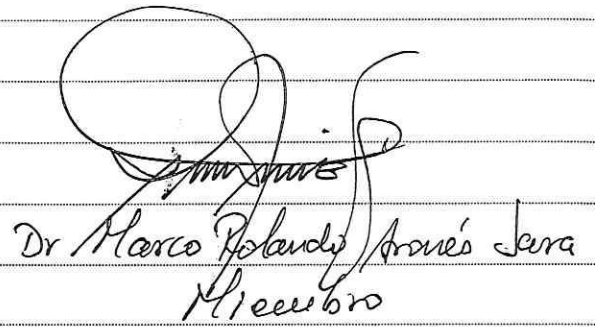 Dr Marco Rolando Aronés Jara
Miembro